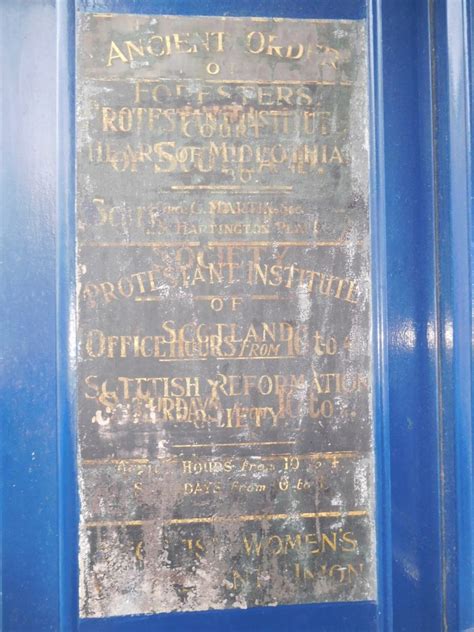 ANCIENT ORDER
O
FORESTERS
PROTESTANT INSTITUTE
COURT
HEART OF MIDLOTHIAN
OF SCOTLAND.
G. MARTIN, Sec.
HARTINGTON PLACE
SOCIETY
PROTESTANT INSTITUTE
OF
SCOTLAND
OFFICE HOURS FROM 10 to 4
SCOTTISH REFORMATION
SATURDAYS from 10 to
SOCIETY.
HOURS from 10 to 4
SATURDAYS from to
WOMEN'S
UNION